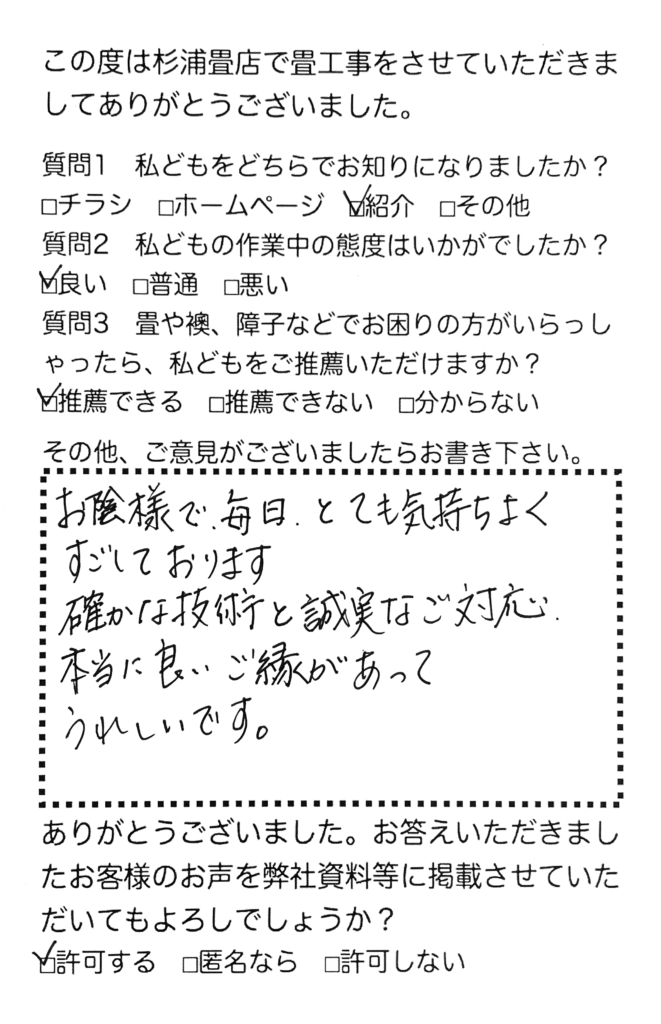 この度は杉浦畳店で畳工事をさせていただきま
してありがとうございました。
質問1　私どもをどちらでお知りになりましたか？
□チラシ　□ホームページ　☑紹介　□その他
質問2　私どもの作業中の態度はいかがでしたか？
☑良い　□普通　□悪い
質問3　畳や襖、障子などでお困りの方がいらっし
ゃったら、私どもをご推薦いただけますか？
☑推薦できる　□推薦できない　□分からない
その他、ご意見がございましたらお書き下さい。
お陰様で、毎日、とても気持ちよく
すごしております
確かな技術と誠実なご対応、
本当に良いご縁があって
うれしいです。
ありがとうございました。お答えいただきまし
たお客様のお声を弊社資料等に掲載させていた
だいてもよろしでしょうか？
☑許可する　□匿名なら　□許可しない